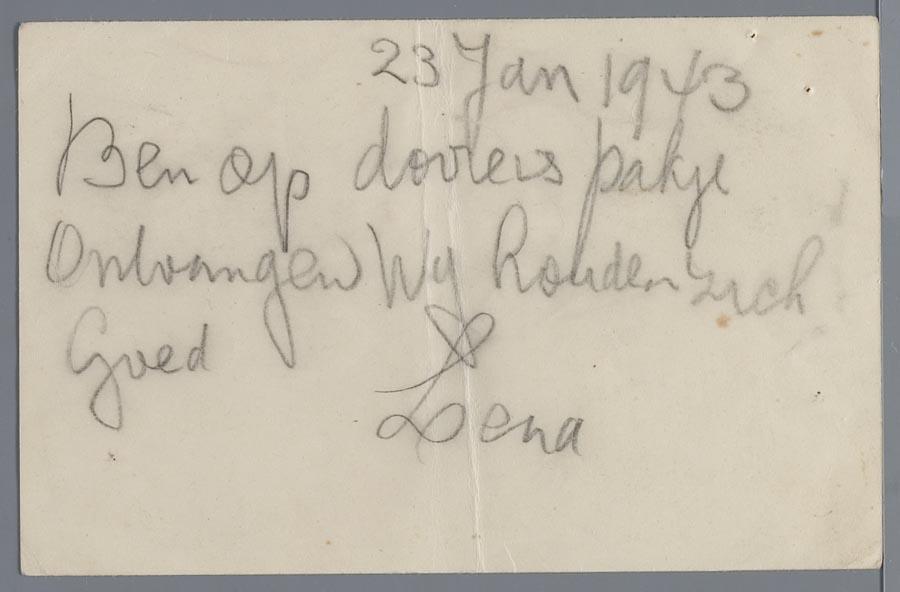 23 Jan 1943
Ben op doorreis pakje
Ontvangen Wy houden zich
Goed
Lena